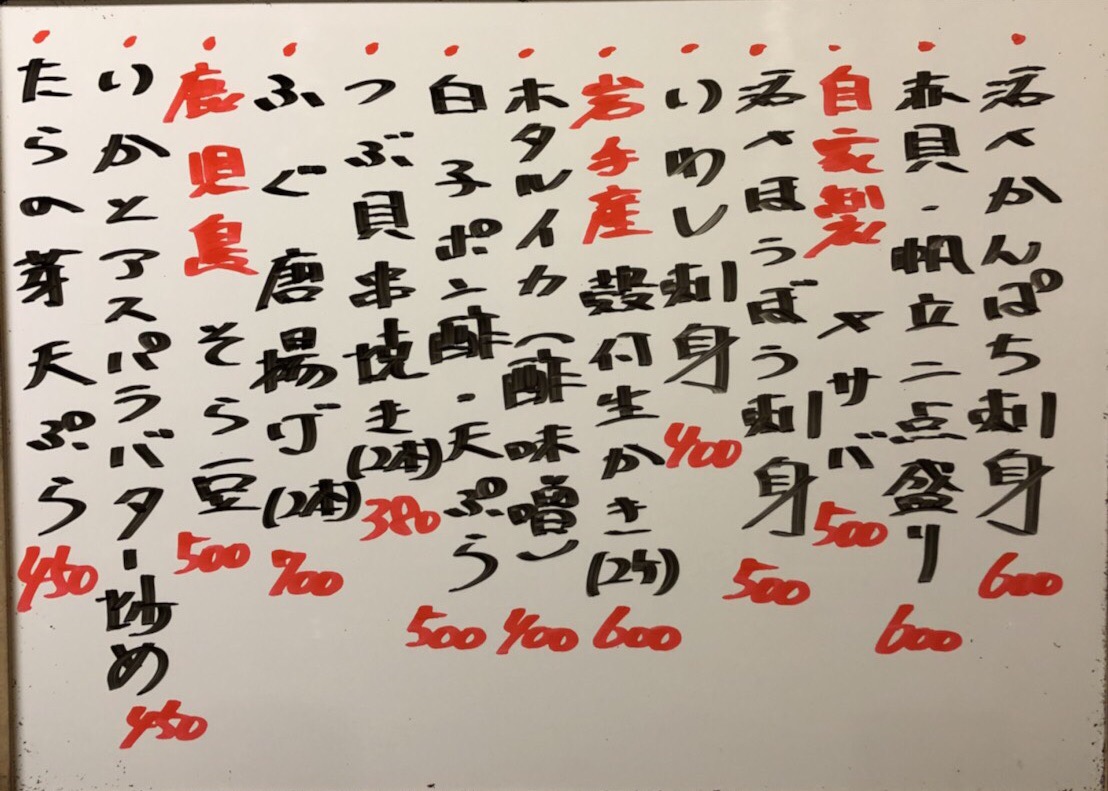 ・活〆かんぱち刺身 600
・赤貝・帆立二点盛り 600
・自家製 〆サバ 500
・活〆ほうぼう刺身 500
・いわし刺身 400
・岩手産 殻付生かき(2ケ) 600
・ホタルイカ(酢味噌) 400
・白子ポン酢・天ぷら 500
・つぶ貝串焼き(2本) 380
・ふぐ唐揚げ(2本) 700
・鹿児島 そら豆 500
・いかとアスパラバター炒め 450
・たらの芽天ぷら 450